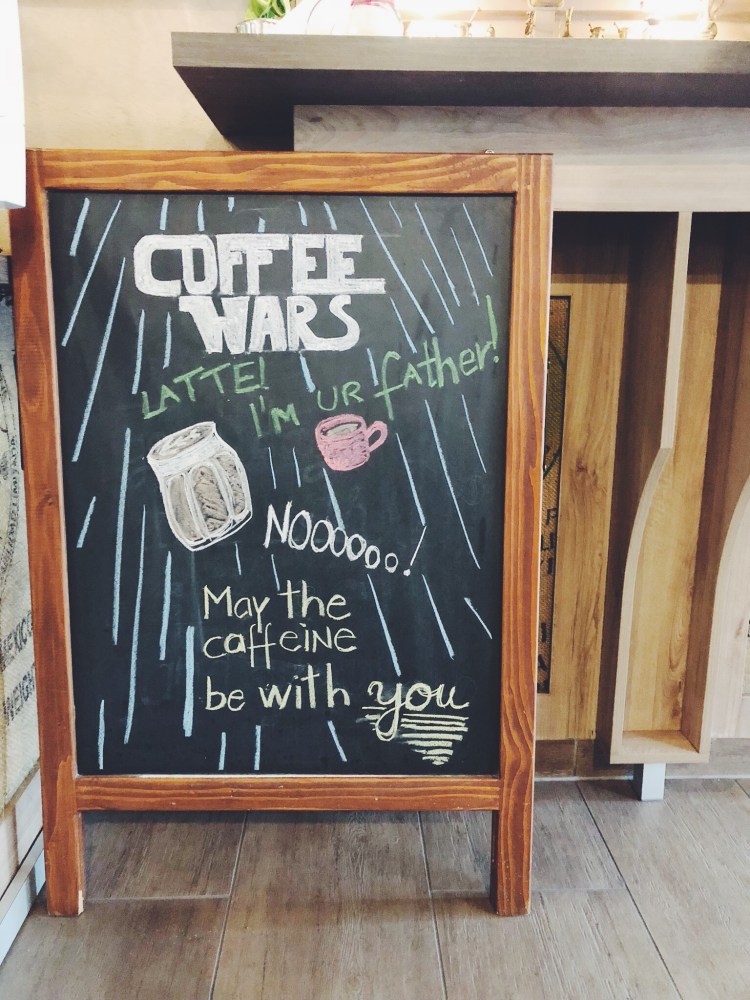 COFFEE
WARS
LATTE!
I'M UR father!
NOOOooo!
May the
caffeine
be with you
MEXICO
WEIGHT